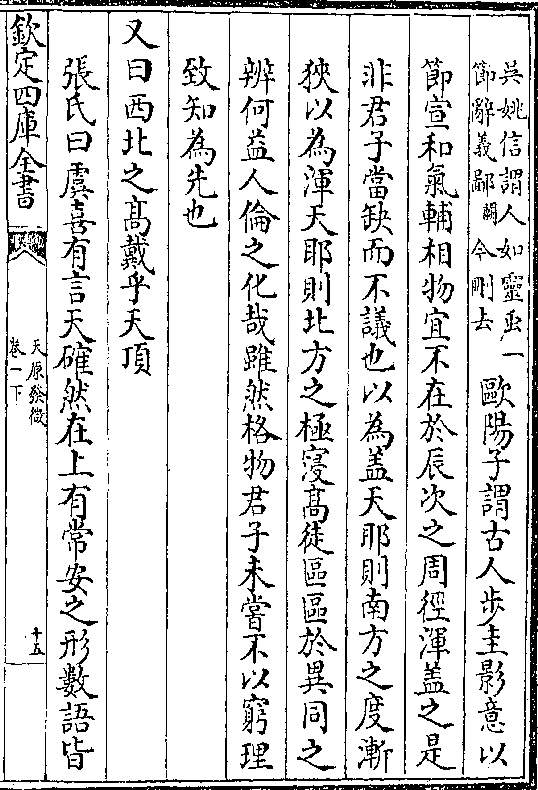 吳姚信謂人如靈䖝一
節辭義鄙闢今刪去
歐陽子謂古人步圭影意以
節宣和氣輔相物宜不在於辰次之周徑渾盖之是
非君子當缺而不議也以為盖天耶則南方之度漸
狹以為渾天耶則北方之極寖髙徒區區於異同之
辨何益人倫之化哉雖然格物君子未嘗不以窮理
致知為先也
又曰西北之髙戴乎天頂
張氏曰虞喜有言天確然在上有常安之形數語皆
欽定四庫全書
天原發微
卷一下
十五